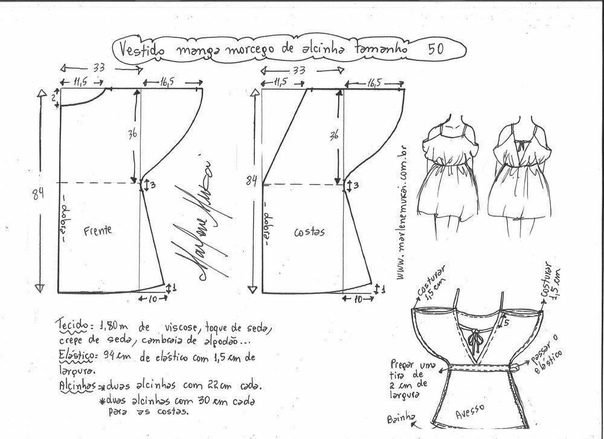 Vestido manga morcego de alcinha tamanho 50
33
11,5
16,5
2
36
84
3
dobra
Frente
10
1
Marlene Mukai
33
11,5
16,5
36
84
3
dobra
costas
10
1
www.marlenemukai.com.br
Tecido: 1,80m de viscose, toque de seda,
crepe de seda, cambraia de algodão...
Elástico: 94 cm de elástico com 1,5cm de
largura.
Alcinhas: *duas alcinhas com 22cm cada.
*duas alcinhas com 30 cm cada
para as costas.
costurar
1,5 cm
costurar
1,5 cm
5
passar o
elástico
Pregar uma
tira de
2 cm de
largura
Bainha
Avesso